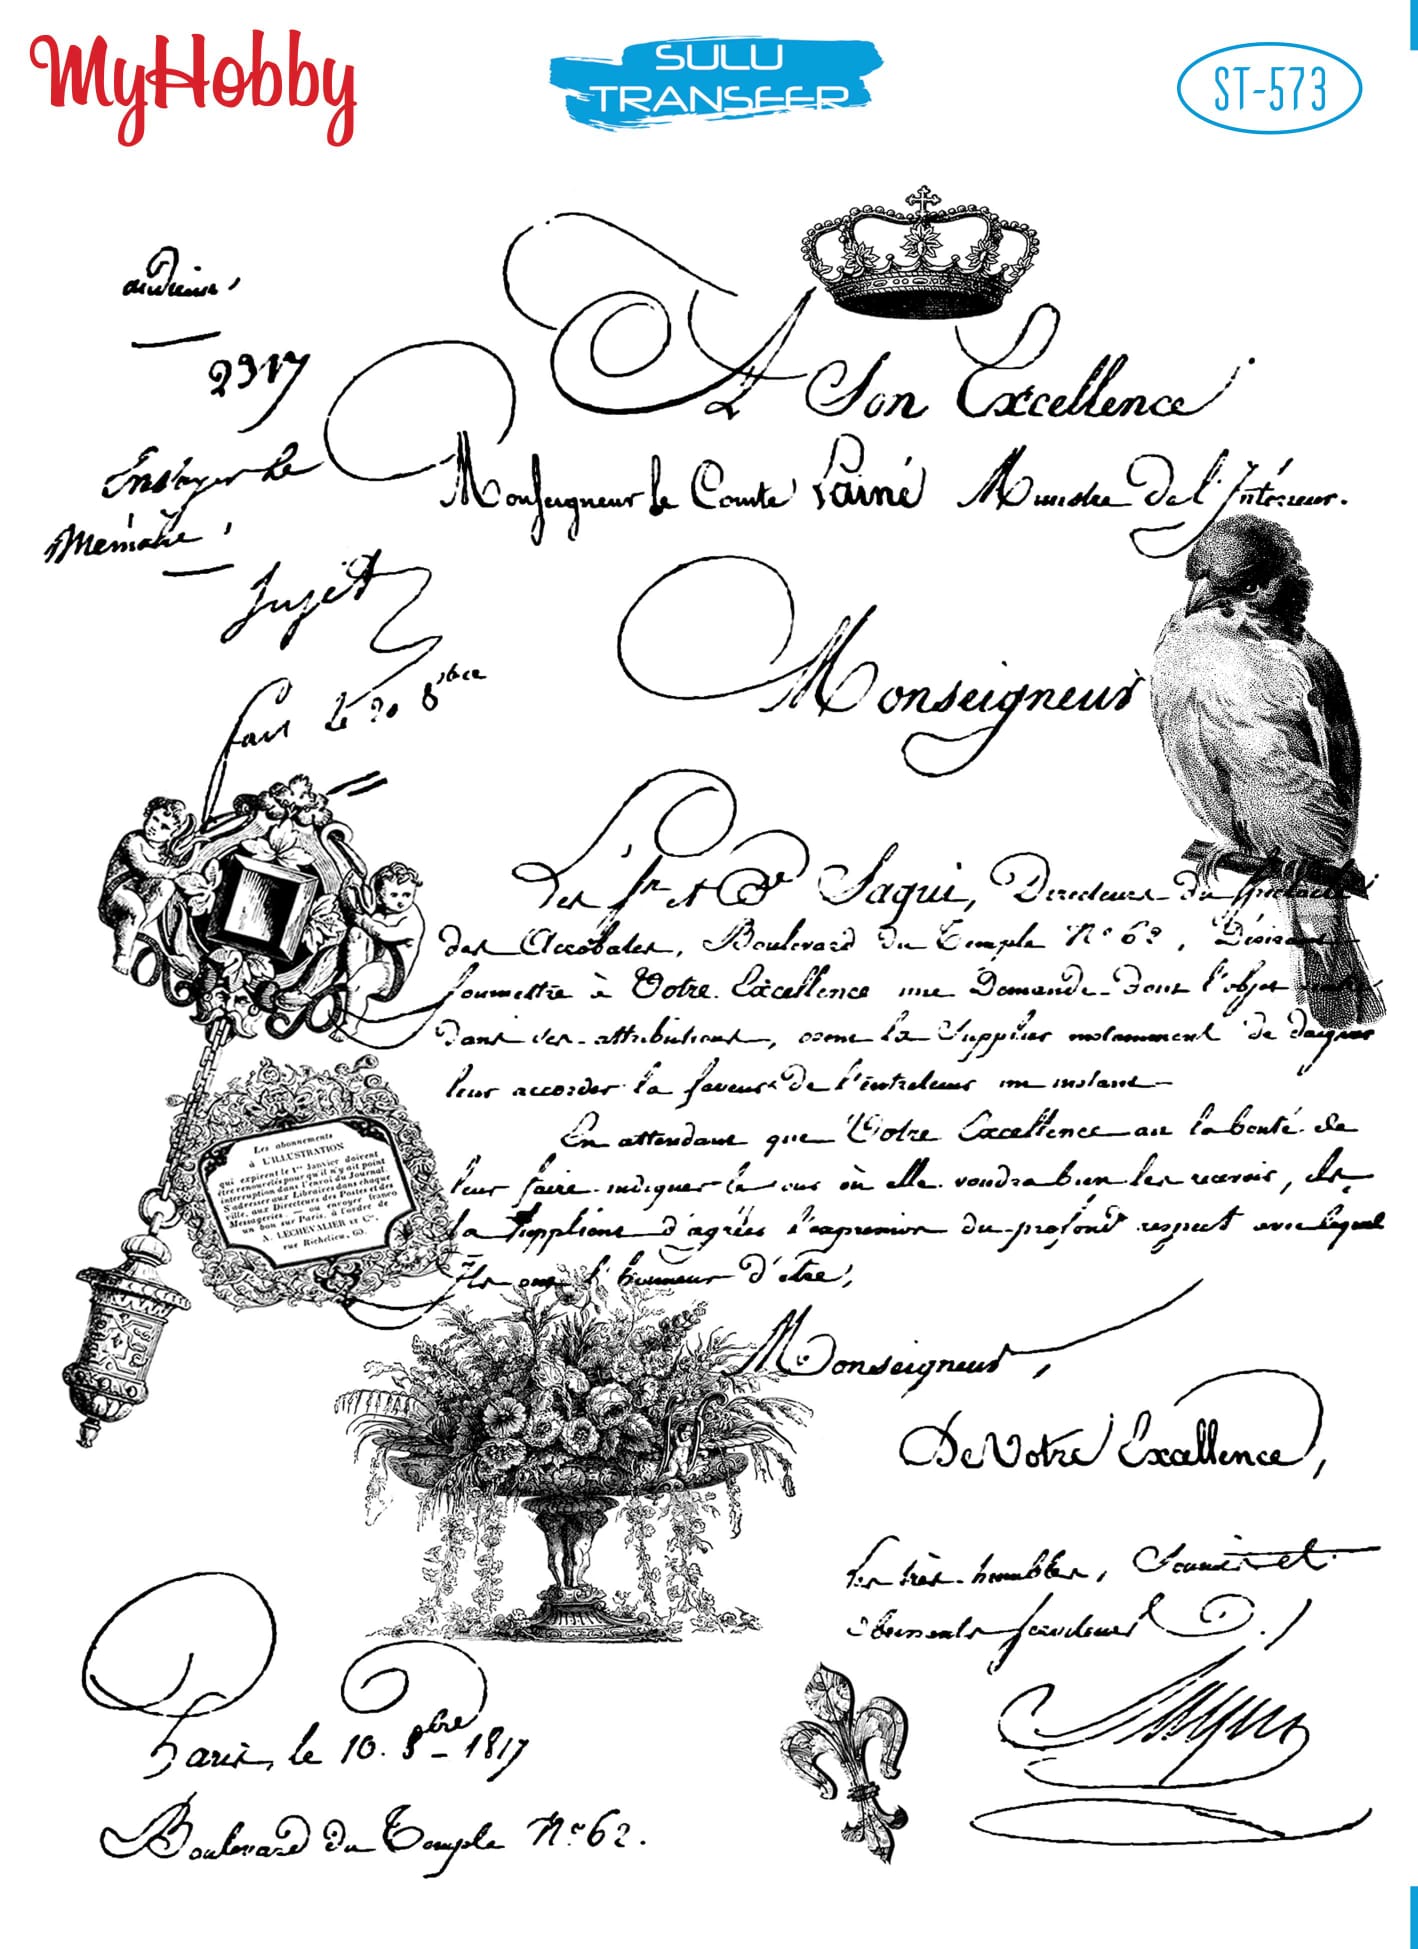 MyHobby
SULU
TRANSFER
ST-573
audience,
2317
A Son Excellence
Envoyer le
Monseigneur le Comte Lainé Ministre De l'Intérieur.
Mémoire
Sujet
Monseigneur
fait le 20 8bre
Les Sr et De Saqui, Directeurs du Spectacle
des Accrobates, Boulevard du Temple N° 62, Désirant
soumettre à Votre Excellence une Demande Dont l'objet
dans ses attributions, osent la Supplier notamment de daigner
leur accorder la faveur de l'entretenir un instant
En attendant que Votre Excellence ait la bonté de
leur faire indiquer le jour où elle voudra bien les recevoir, ils
la supplient d'agréer l'expression du profond respect avec lequel
Ils ont l'honneur d'être,
Les abonnements
à L'ILLUSTRATION
qui expirent le 1er Janvier doivent
être renouvelés pour qu'il n'y ait point
interruption dans l'envoi du Journal.
S'adresser aux Libraires dans chaque
ville, aux Directeurs des Postes et des
Messageries, — ou envoyer franco
un bon sur Paris, à l'ordre de
A. LECHEVALIER et Cie,
rue Richelieu, 60.
Monseigneur,
De Votre Excellence,
Les très humbles, Soumis et
obéissants serviteurs
Saqui
Paris, le 10. 8bre 1817
Boulevard du Temple N° 62.